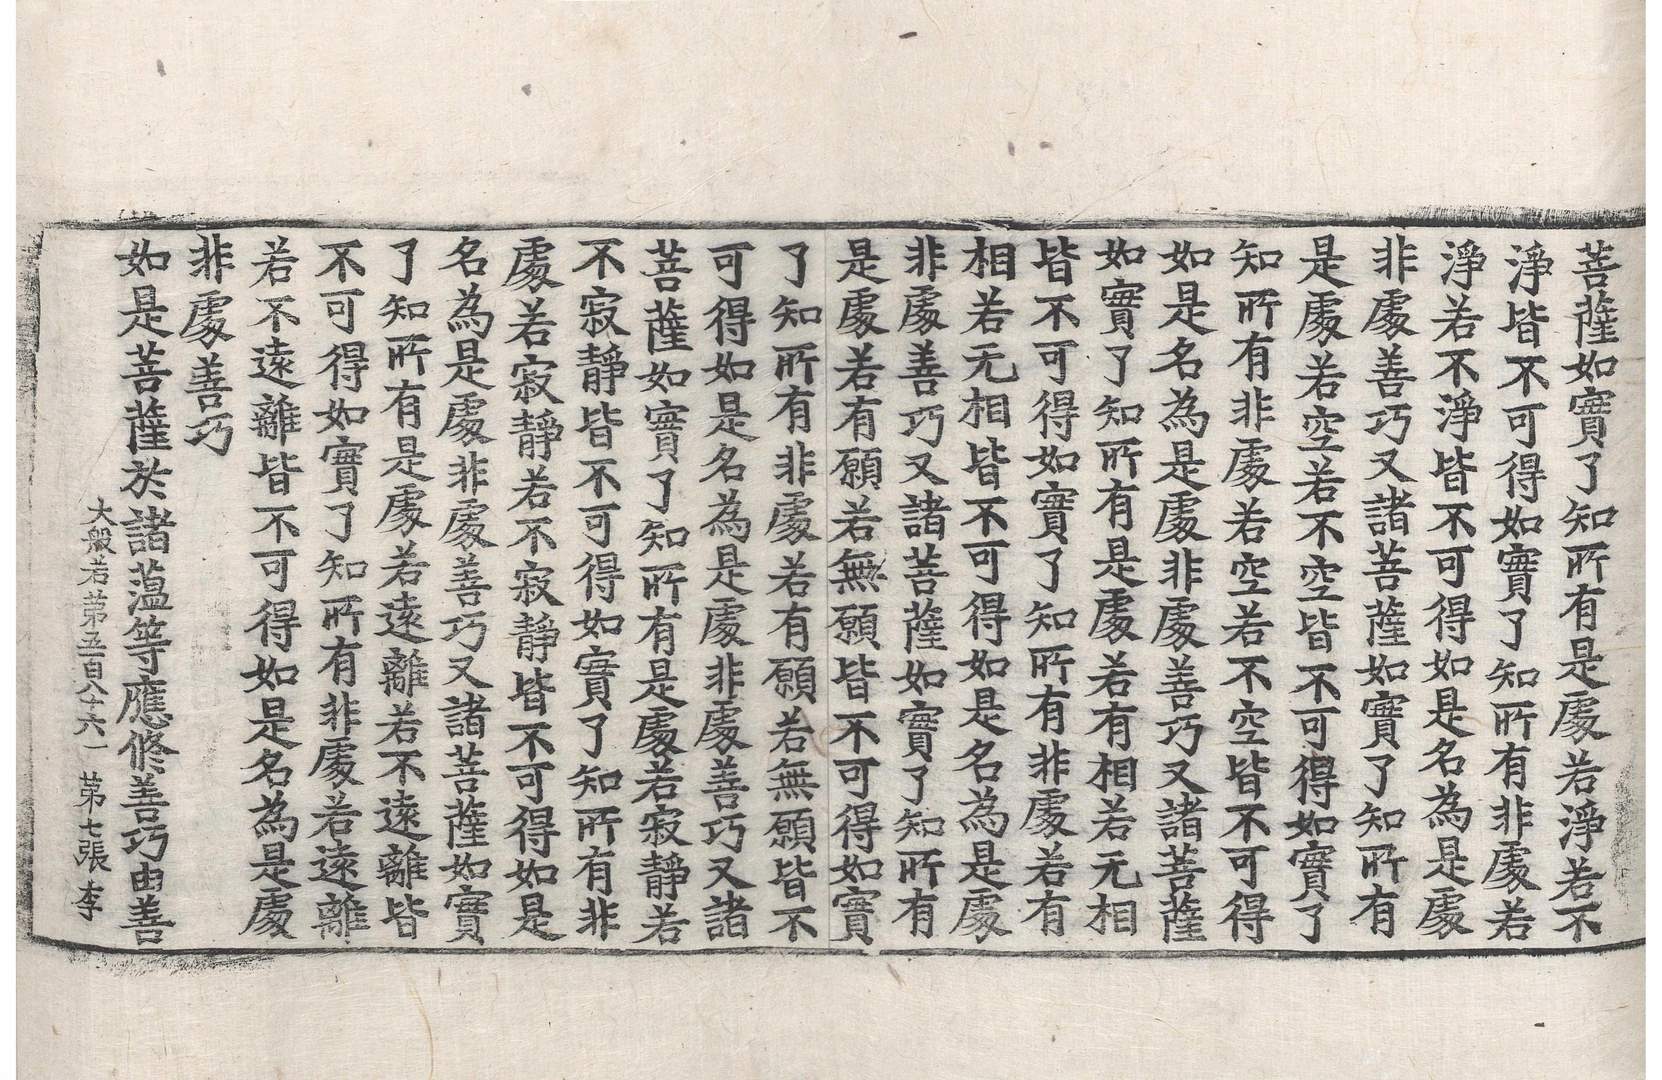 菩薩如實了知所有是處若淨若不
淨皆不可得如實了知所有非處若
淨若不淨皆不可得如是名為是處
非處善巧又諸菩薩如實了知所有
是處若空若不空皆不可得如實了
知所有非處若空若不空皆不可得
如是名為是處非處善巧又諸菩薩
如實了知所有是處若有相若无相
皆不可得如實了知所有非處若有
相若无相皆不可得如是名為是處
非處善巧又諸菩薩如實了知所有
是處若有願若無願皆不可得如實
了知所有非處若有願若無願皆不
可得如是名為是處非處善巧又諸
菩薩如實了知所有是處若寂靜若
不寂靜皆不可得如實了知所有非
處若寂靜若不寂靜皆不可得如是
名為是處非處善巧又諸菩薩如實
了知所有是處若遠離若不遠離皆
不可得如實了知所有非處若遠離
若不遠離皆不可得如是名為是處
非處善巧
如是菩薩於諸薀等應修善巧由善
大般若第五百八十六 第七張 李